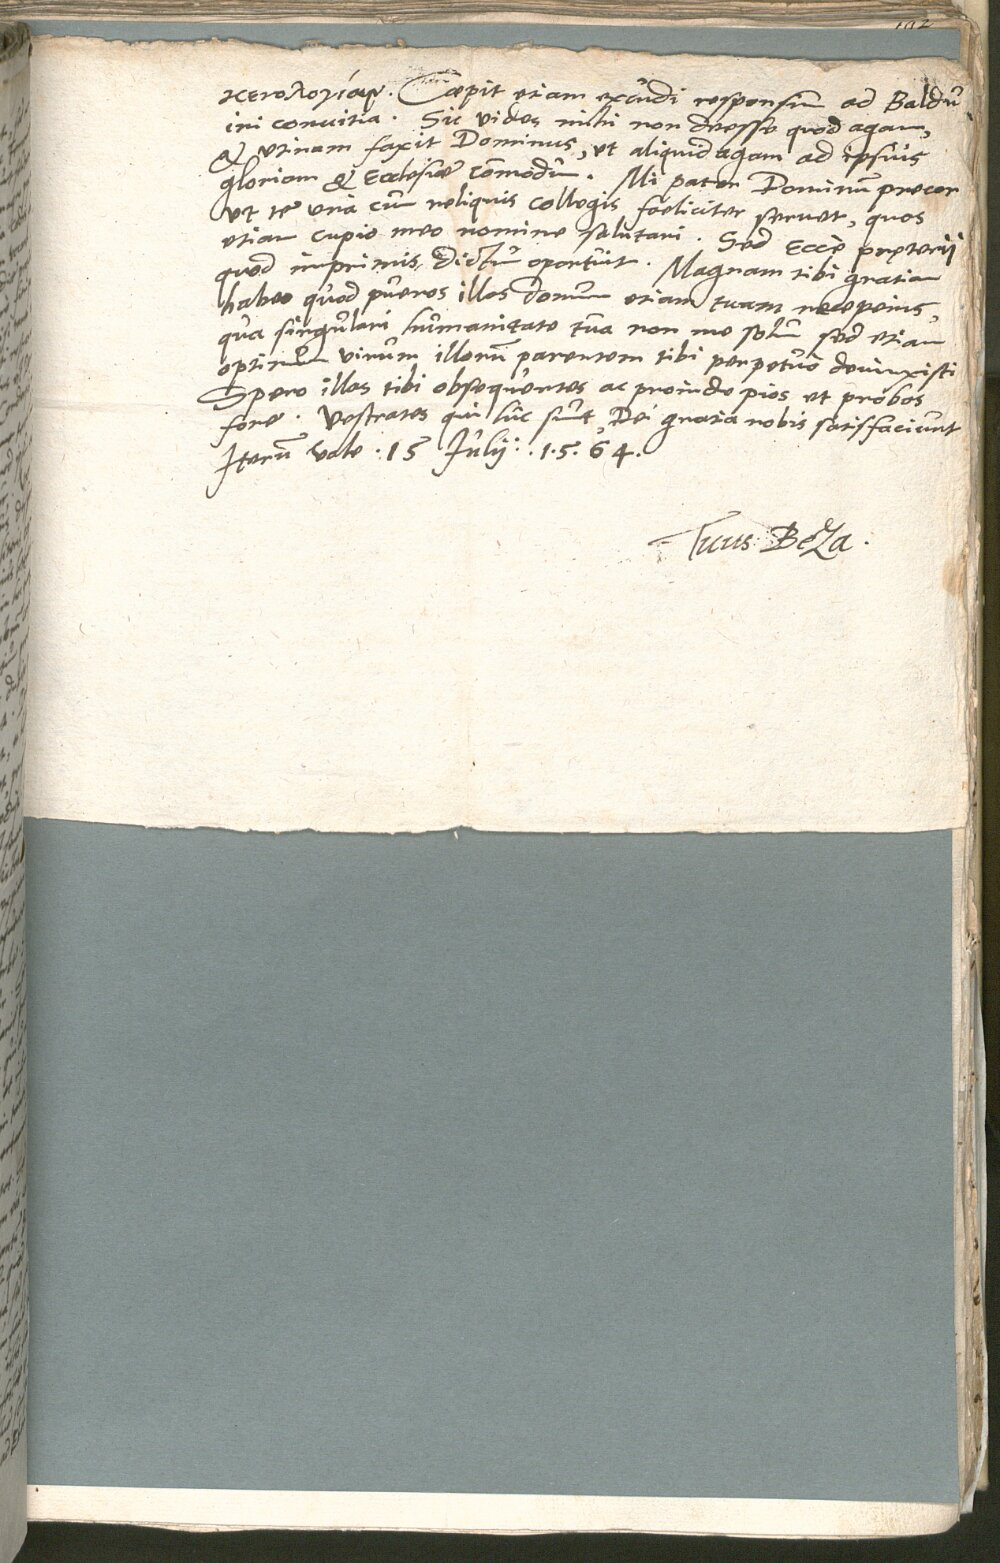 κενολογίαν. Cœpit etiam excudi responsum ad Baldu
ini convitia. Sic vides mihi non deesse quod agam,
& utinam faxit Dominus, ut aliquid agam ad ipsius
gloriam & Ecclesiæ com̄odum. Mi pater Dominum precor
ut te unà cum reliquis collegis fœliciter servet, quos
etiam cupio meo nomine salutari. Sed Ecce præterij
quod imprimis dictū oportuit. Magnam tibi gratiam
habeo quod pueros illos domum etiam tuam receperis,
qua singulari humanitate tua non me solū sed etiam
optimum virum illorū parentem tibi perpetuò devinxisti
Spero illos tibi obsequentes ac proinde pios et probos
fore. Vestrates qui hîc sunt, Dei gratia nobis satisfaciunt
Iterū vale. 15 Julij. 1.5.64.
Tuus Beza.